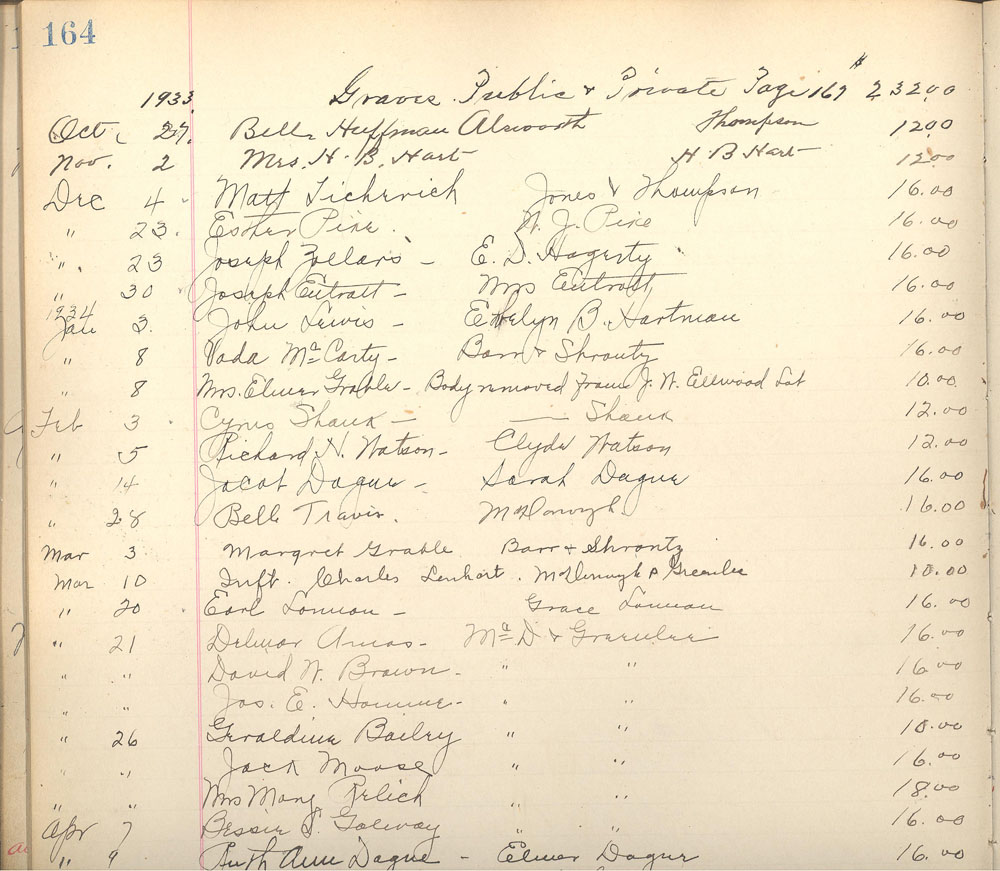 164
1933 Graves Public & Private Page 167 $ 232.00
Oct. 27. Belle Huffman Alsworth Thompson 12.00
Nov. 2 Mrs. H. B. Hart H B Hart 12.00
Dec 4 Matt Jones & Thompson 16.00
" 23. Esther Pire. W. J. Pire 16.00
" 23 Joseph Zollars - E. D. Hagerty 16.00
" 30 Joseph Eutratt - Mrs Eutratt 16.00
1934
Jan 3. John Lewis - Ethelyn B. Hartman 16.00
" 8 Vada McCarty - Barr & Shrontz 16.00
" 8 Mrs. Elmer Grable - Body removed from J. W. Ellwood Lot 10.00
Feb 3 Cyrus Shank - — Shank 12.00
" 5 Richard N. Watson - Clyde Watson 12.00
" 14 Jacob Dague - Sarah Dague 16.00
" 28 Belle Travis. McDonough 16.00
Mar 3 Margret Grable Barr & Shrontz 16.00
Mar 10 Inft. Charles Lenhart. McDonough & Greenlee 10.00
" 20 Earl Lonnon - Grace Lonnon 16.00
" 21 Delmar Amos - McD & Greenlee 16.00
" " David W. Brown - " " 16.00
" " Jos. E. - " " 16.00
" 26 Geraldine Bailey " " 10.00
" " Jack Moose " " 16.00
" " Mrs Mary Relich " " 18.00
Apr 7 Bessie Galway " " 16.00
" 9 Ruth Ann Dague - Elmer Dague 16.00